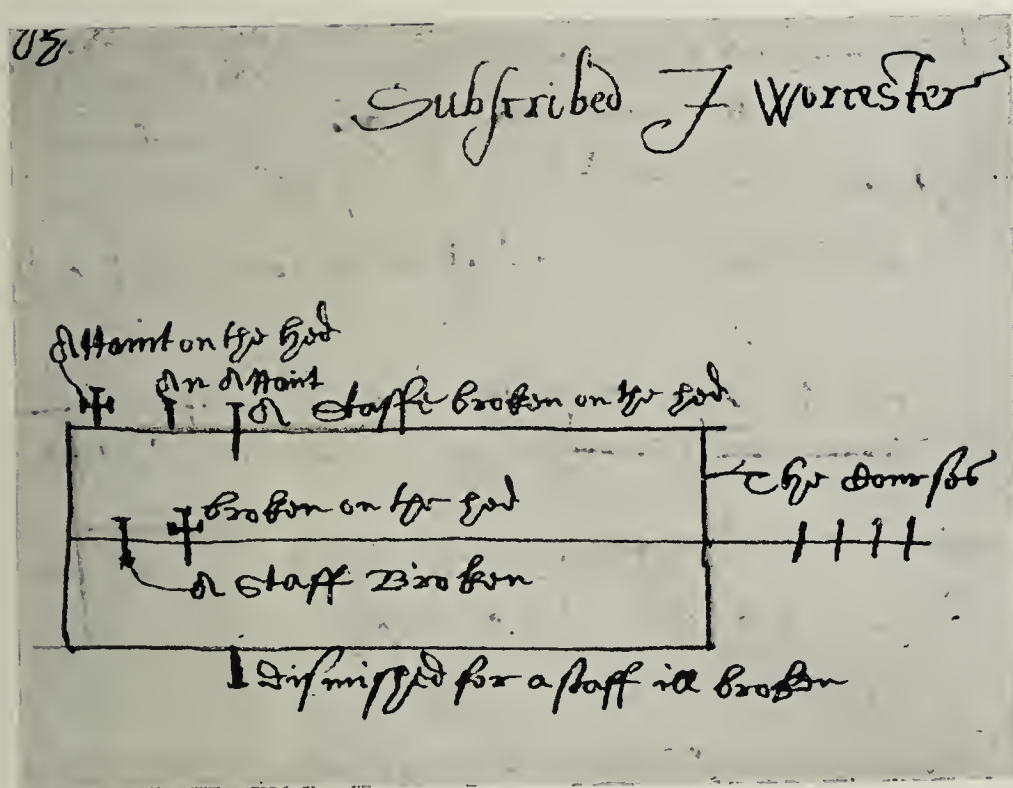 Subscribed J Worcester
Attaint on the hed
An Attaint
A Staffe broken on the hed
The Courses
broken on the hed
A Staff Broken
dismisshed for a staff ill broken